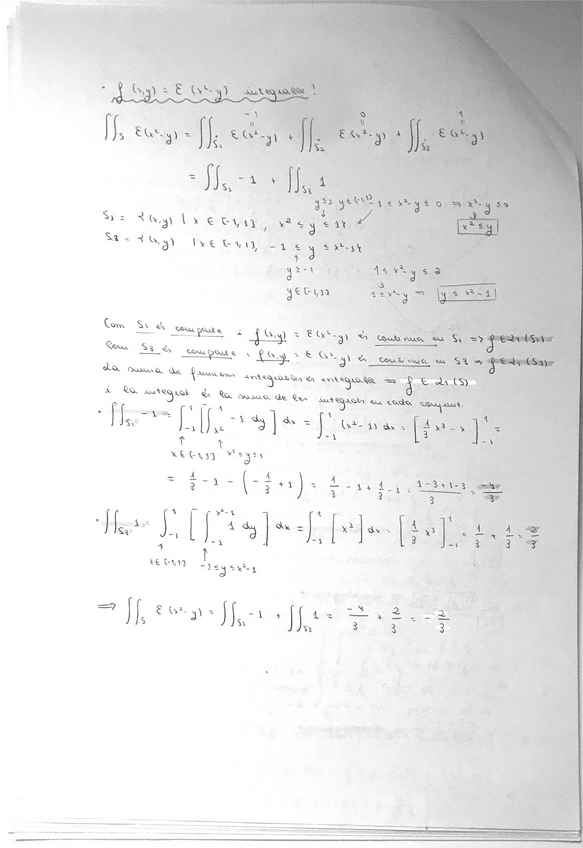 · f(x,y) = E(x²-y) integrable?
-1 0 1
∬_S E(x²-y) = ∬_S1 E(x²-y) + ∬_S2 E(x²-y) + ∬_S3 E(x²-y)
= ∬_S1 -1 + ∬_S3 1
y≤1 y∈[-1,1] -1 ≤ x²-y ≤ 0 ⇒ x²-y ≤ 0
S1 = {(x,y) | x ∈ [-1,1], x² ≤ y ≤ 1} x² ≤ y
S3 = {(x,y) | x ∈ [-1,1], -1 ≤ y ≤ x²-1}
y ≥ -1 1 ≤ x²-y ≤ 2
y ∈ [-1,1] 1 ≤ x²-y ⇒ y ≤ x²-1
Com S1 és compacte i f(x,y) = E(x²-y) és contínua en S1 => f ∈ R(S1)
Com S3 és compacte i f(x,y) = E(x²-y) és contínua en S3 => f ∈ R(S3)
La suma de funcions integrables és integrable ⇒ f ∈ R(S)
i la integral és la suma de les integrals en cada conjunt.
· ∬_S1 -1 = ∫_{-1}^{1} [∫_{x²}^{1} -1 dy] dx = ∫_{-1}^{1} (x²-1) dx = [1/3 x³ - x]_{-1}^{1} =
x ∈ [-1,1] x² ≤ y ≤ 1
= 1/3 - 1 - (-1/3 + 1) = 1/3 - 1 + 1/3 - 1 = (1-3+1-3)/3 = -4/3
· ∬_S3 1 = ∫_{-1}^{1} [∫_{-1}^{x²-1} 1 dy] dx = ∫_{-1}^{1} [x²] dx = [1/3 x³]_{-1}^{1} = 1/3 + 1/3 = 2/3
x ∈ [-1,1] -1 ≤ y ≤ x²-1
⇒ ∬_S E(x²-y) = ∬_S1 -1 + ∬_S3 1 = -4/3 + 2/3 = -2/3